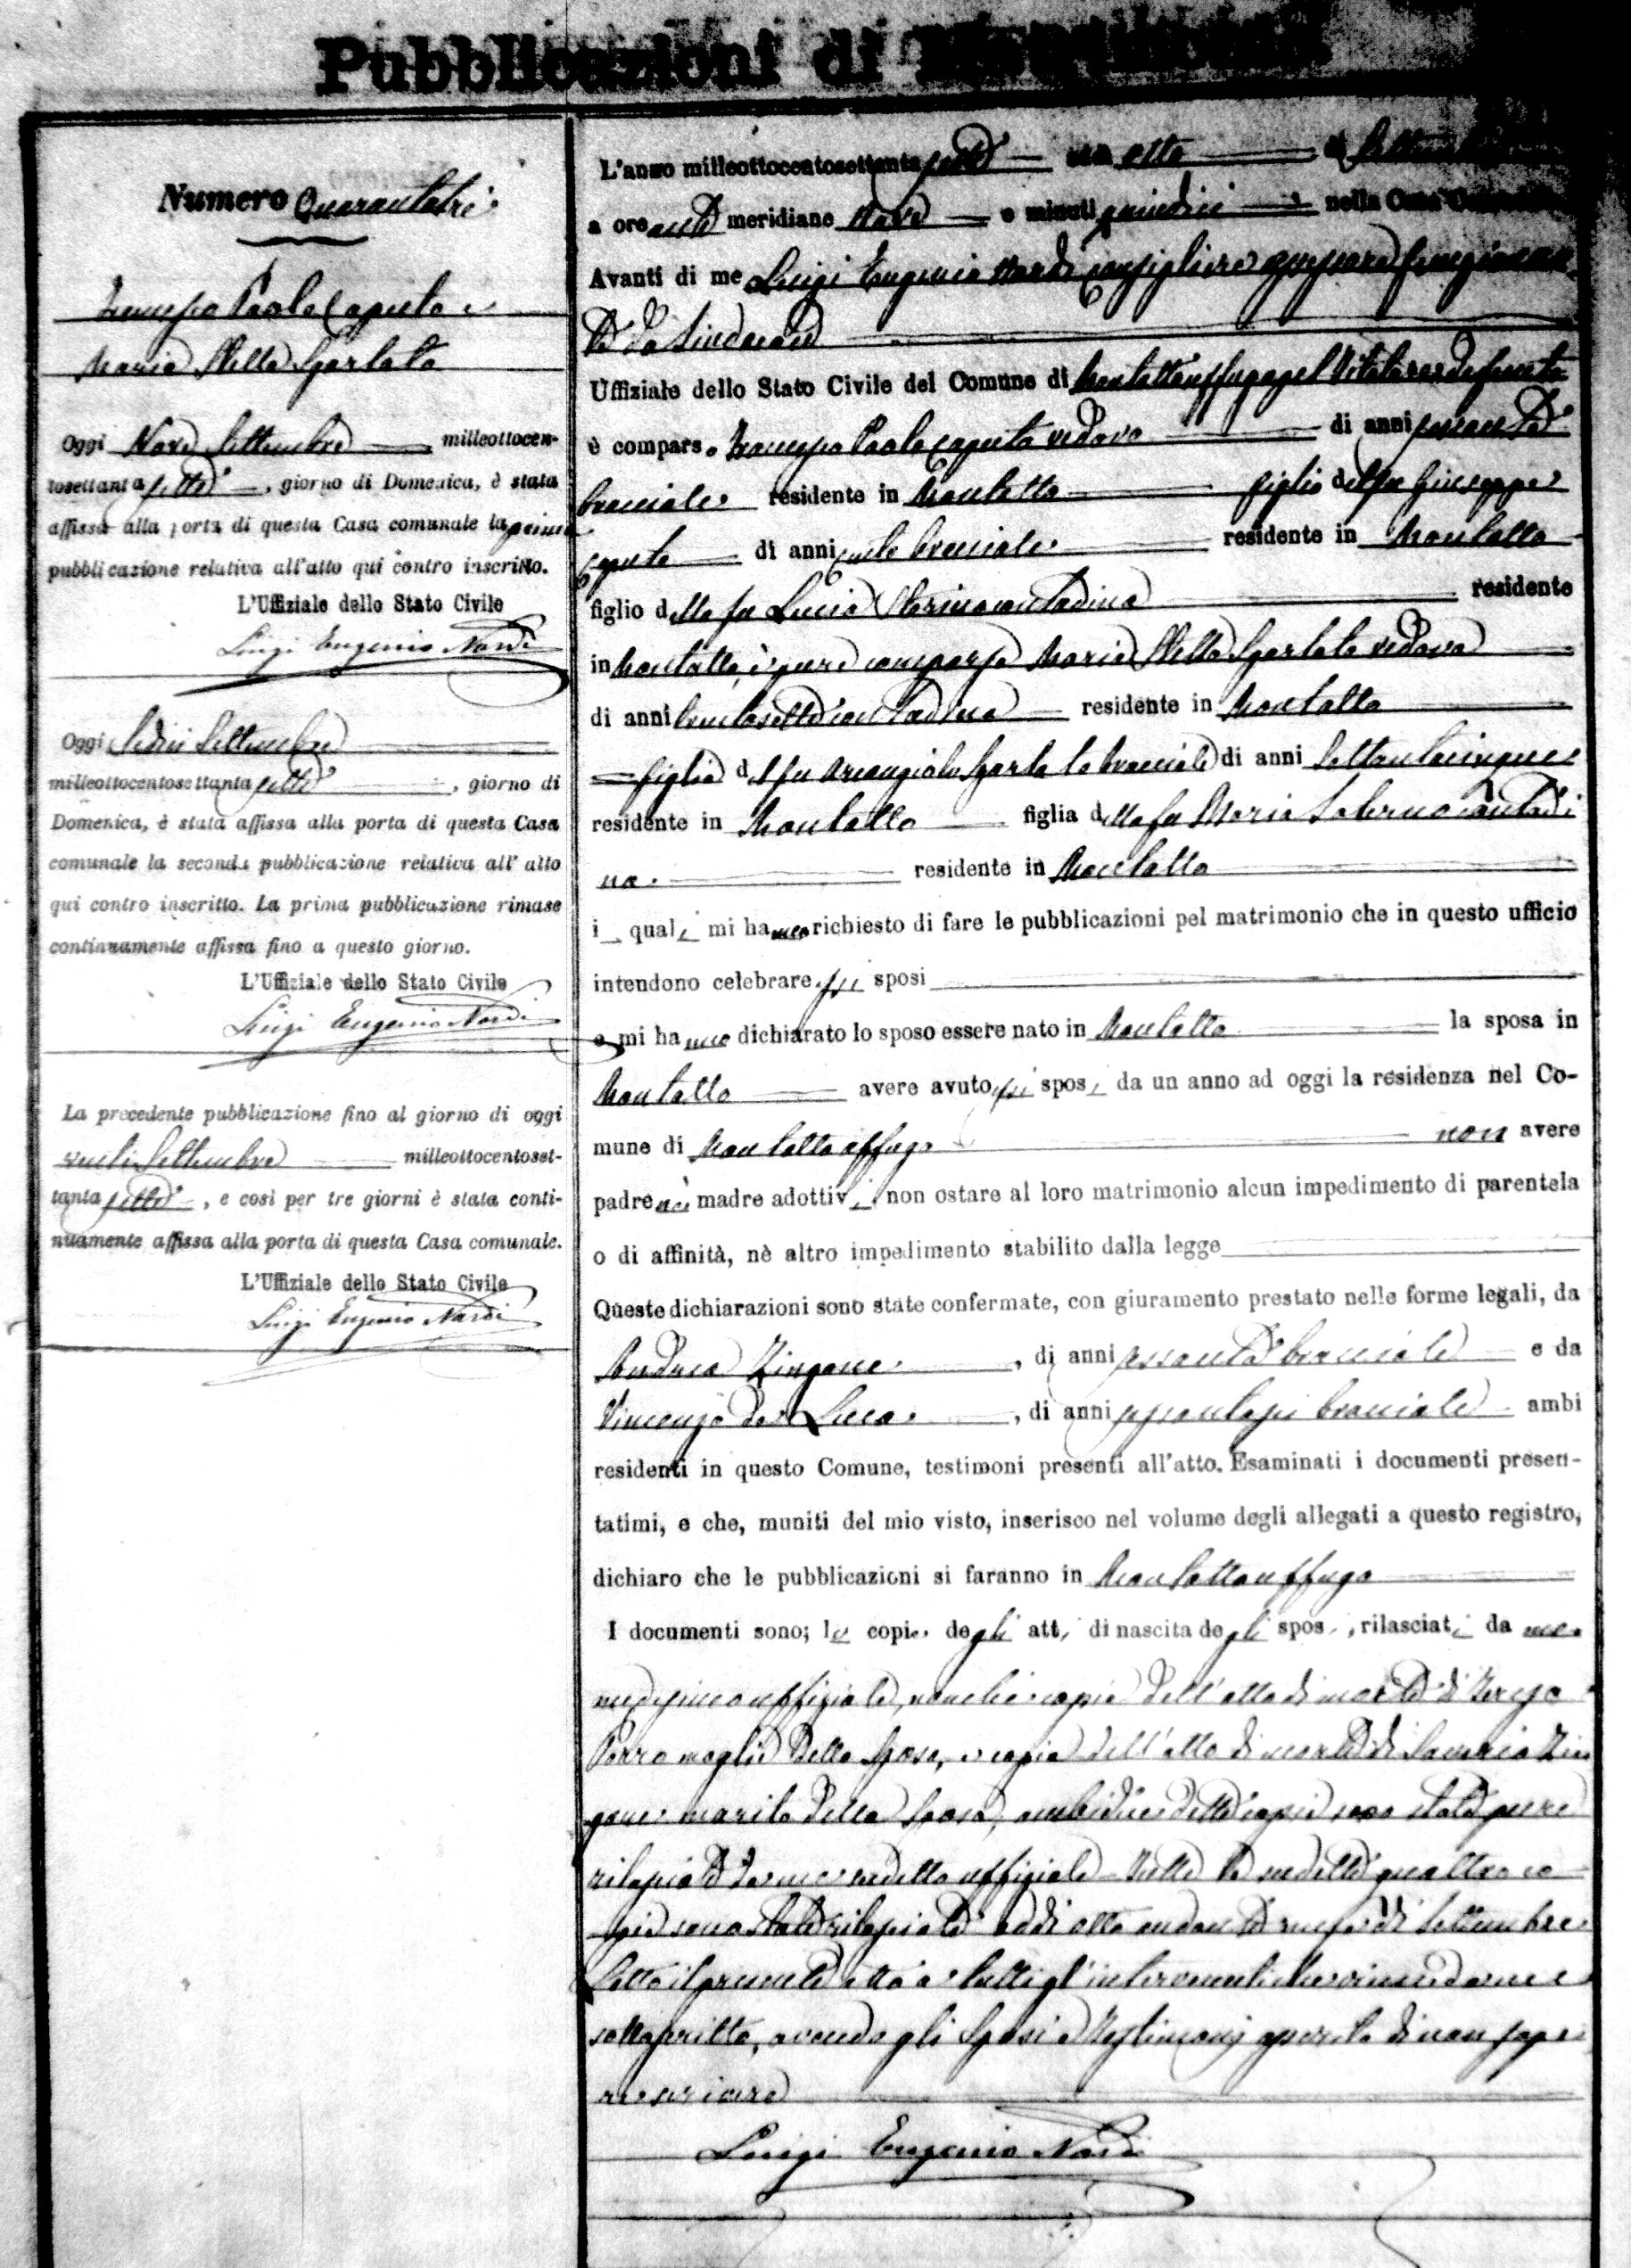 Pubblicazioni di
Numero Quarantatrè
Francesco Paolo Caputo e
Maria Stella Sparlato
Oggi Nove Settembre milleottocen-
tosettanta sette, giorno di Domenica, è stata
affissa alla porta di questa Casa comunale la prima
pubblicazione relativa all'atto qui contro inscritto.
L'Uffiziale dello Stato Civile
Luigi Eugenio Nardi
Oggi Sedici Settembre
milleottocentosettanta sette, giorno di
Domenica, è stata affissa alla porta di questa Casa
comunale la seconda pubblicazione relativa all'atto
qui contro inscritto. La prima pubblicazione rimase
continuamente affissa fino a questo giorno.
L'Uffiziale dello Stato Civile
Luigi Eugenio Nardi
La precedente pubblicazione fino al giorno di oggi
venti Settembre milleottocentoset-
tanta sette, e così per tre giorni è stata conti-
nuamente affissa alla porta di questa Casa comunale.
L'Uffiziale dello Stato Civile
Luigi Eugenio Nardi
L'anno milleottocentosettanta sette otto di Settembre
a ore anti meridiane nove e minuti quindici nella Casa Comunale
Avanti di me Luigi Eugenio Nardi Consigliere assessore funzionan
te da Sindaco
Uffiziale dello Stato Civile del Comune di Montaltouffugo pel titolare defunto
è comparso Francesco Paolo Caputo vedovo di anni sessanta
bracciale residente in Montalto figlio del fu Giuseppe
Caputo di anni bracciale residente in Montalto
figlio della fu Lucia contadina residente
in Montalto, è pure comparsa Maria Stella Sparlato vedova
di anni trentasette contadina residente in Montalto
figlia del fu Arcangiolo Sparlato bracciale di anni Settantacinque
residente in Montalto figlia della fu Maria Salerno contadi
na. residente in Montalto
i quali mi hanno richiesto di fare le pubblicazioni pel matrimonio che in questo ufficio
intendono celebrare essi sposi
e mi hanno dichiarato lo sposo essere nato in Montalto la sposa in
Montalto avere avuto essi sposi da un anno ad oggi la residenza nel Co-
mune di Montaltouffugo non avere
padre nè madre adottivi, non ostare al loro matrimonio alcun impedimento di parentela
o di affinità, nè altro impedimento stabilito dalla legge
Queste dichiarazioni sono state confermate, con giuramento prestato nelle forme legali, da
Andrea Zingone, di anni sessanta bracciale e da
Vincenzo de Luca, di anni sessantasei bracciale ambi
residenti in questo Comune, testimoni presenti all'atto. Esaminati i documenti presen-
tatimi, e che, muniti del mio visto, inserisco nel volume degli allegati a questo registro,
dichiaro che le pubblicazioni si faranno in Montaltouffugo
I documenti sono; le copie degli atti di nascita degli sposi, rilasciati da me
medesimo uffiziale, nonchè copia dell'atto di morte di Teresa
Porro moglie dello Sposo, e copia dell'atto di morte di Saverio Zin
gone marito della Sposa, ambidue dette copie sono state pure
rilasciate da me sudetto uffiziale Tutte le sudette quattro co
pie sono state rilasciate addi otto andante mese di Settembre
Letto il presente atto a tutti gl'intervenuti
sottoscritto, avendo gli Sposi e Testimonj asserito di non sape
re scrivere
Luigi Eugenio Nardi